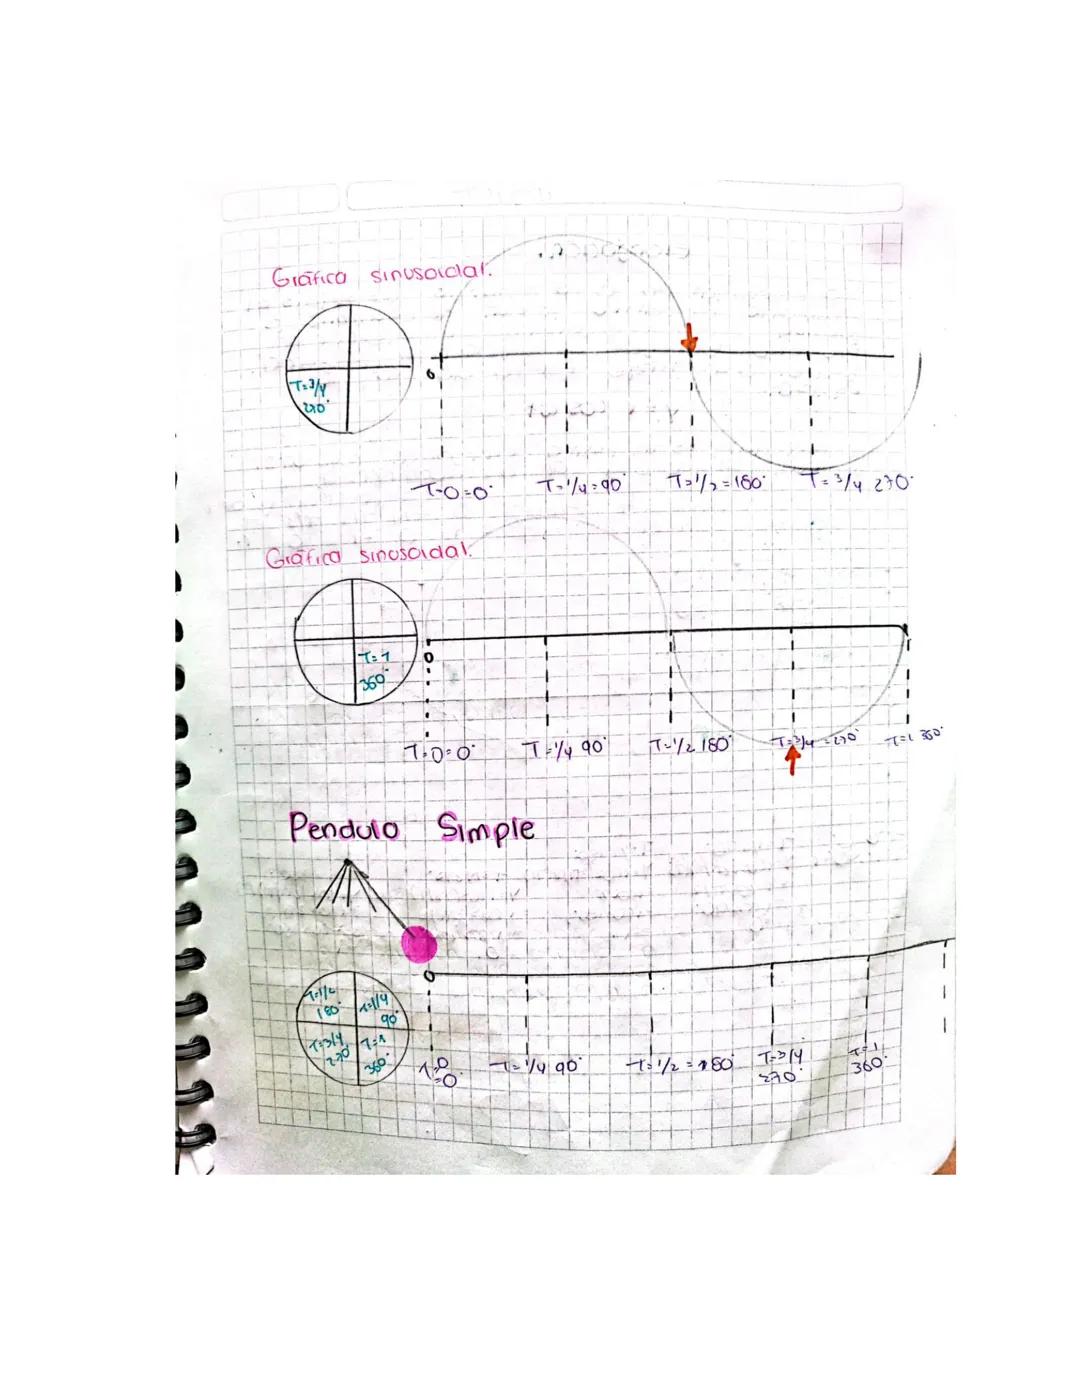 Gráfica sinusoidal.
T=3/4
270°
0
T=0=0° T=1/4=90° T=1/2=180° T=3/4 270°
Gráfica sinusoidal.
T=1
360°
0
T=0=0° T=1/4 90° T=1/2 180° T=3/4=270° T=1 360°
Pendulo Simple
0
T=1/2
180°
T=1/4
90°
T=3/4
270°
T=1
360°
T=0
=0° T=1/4 90° T=1/2=180° T=3/4
270°
T=1
360°